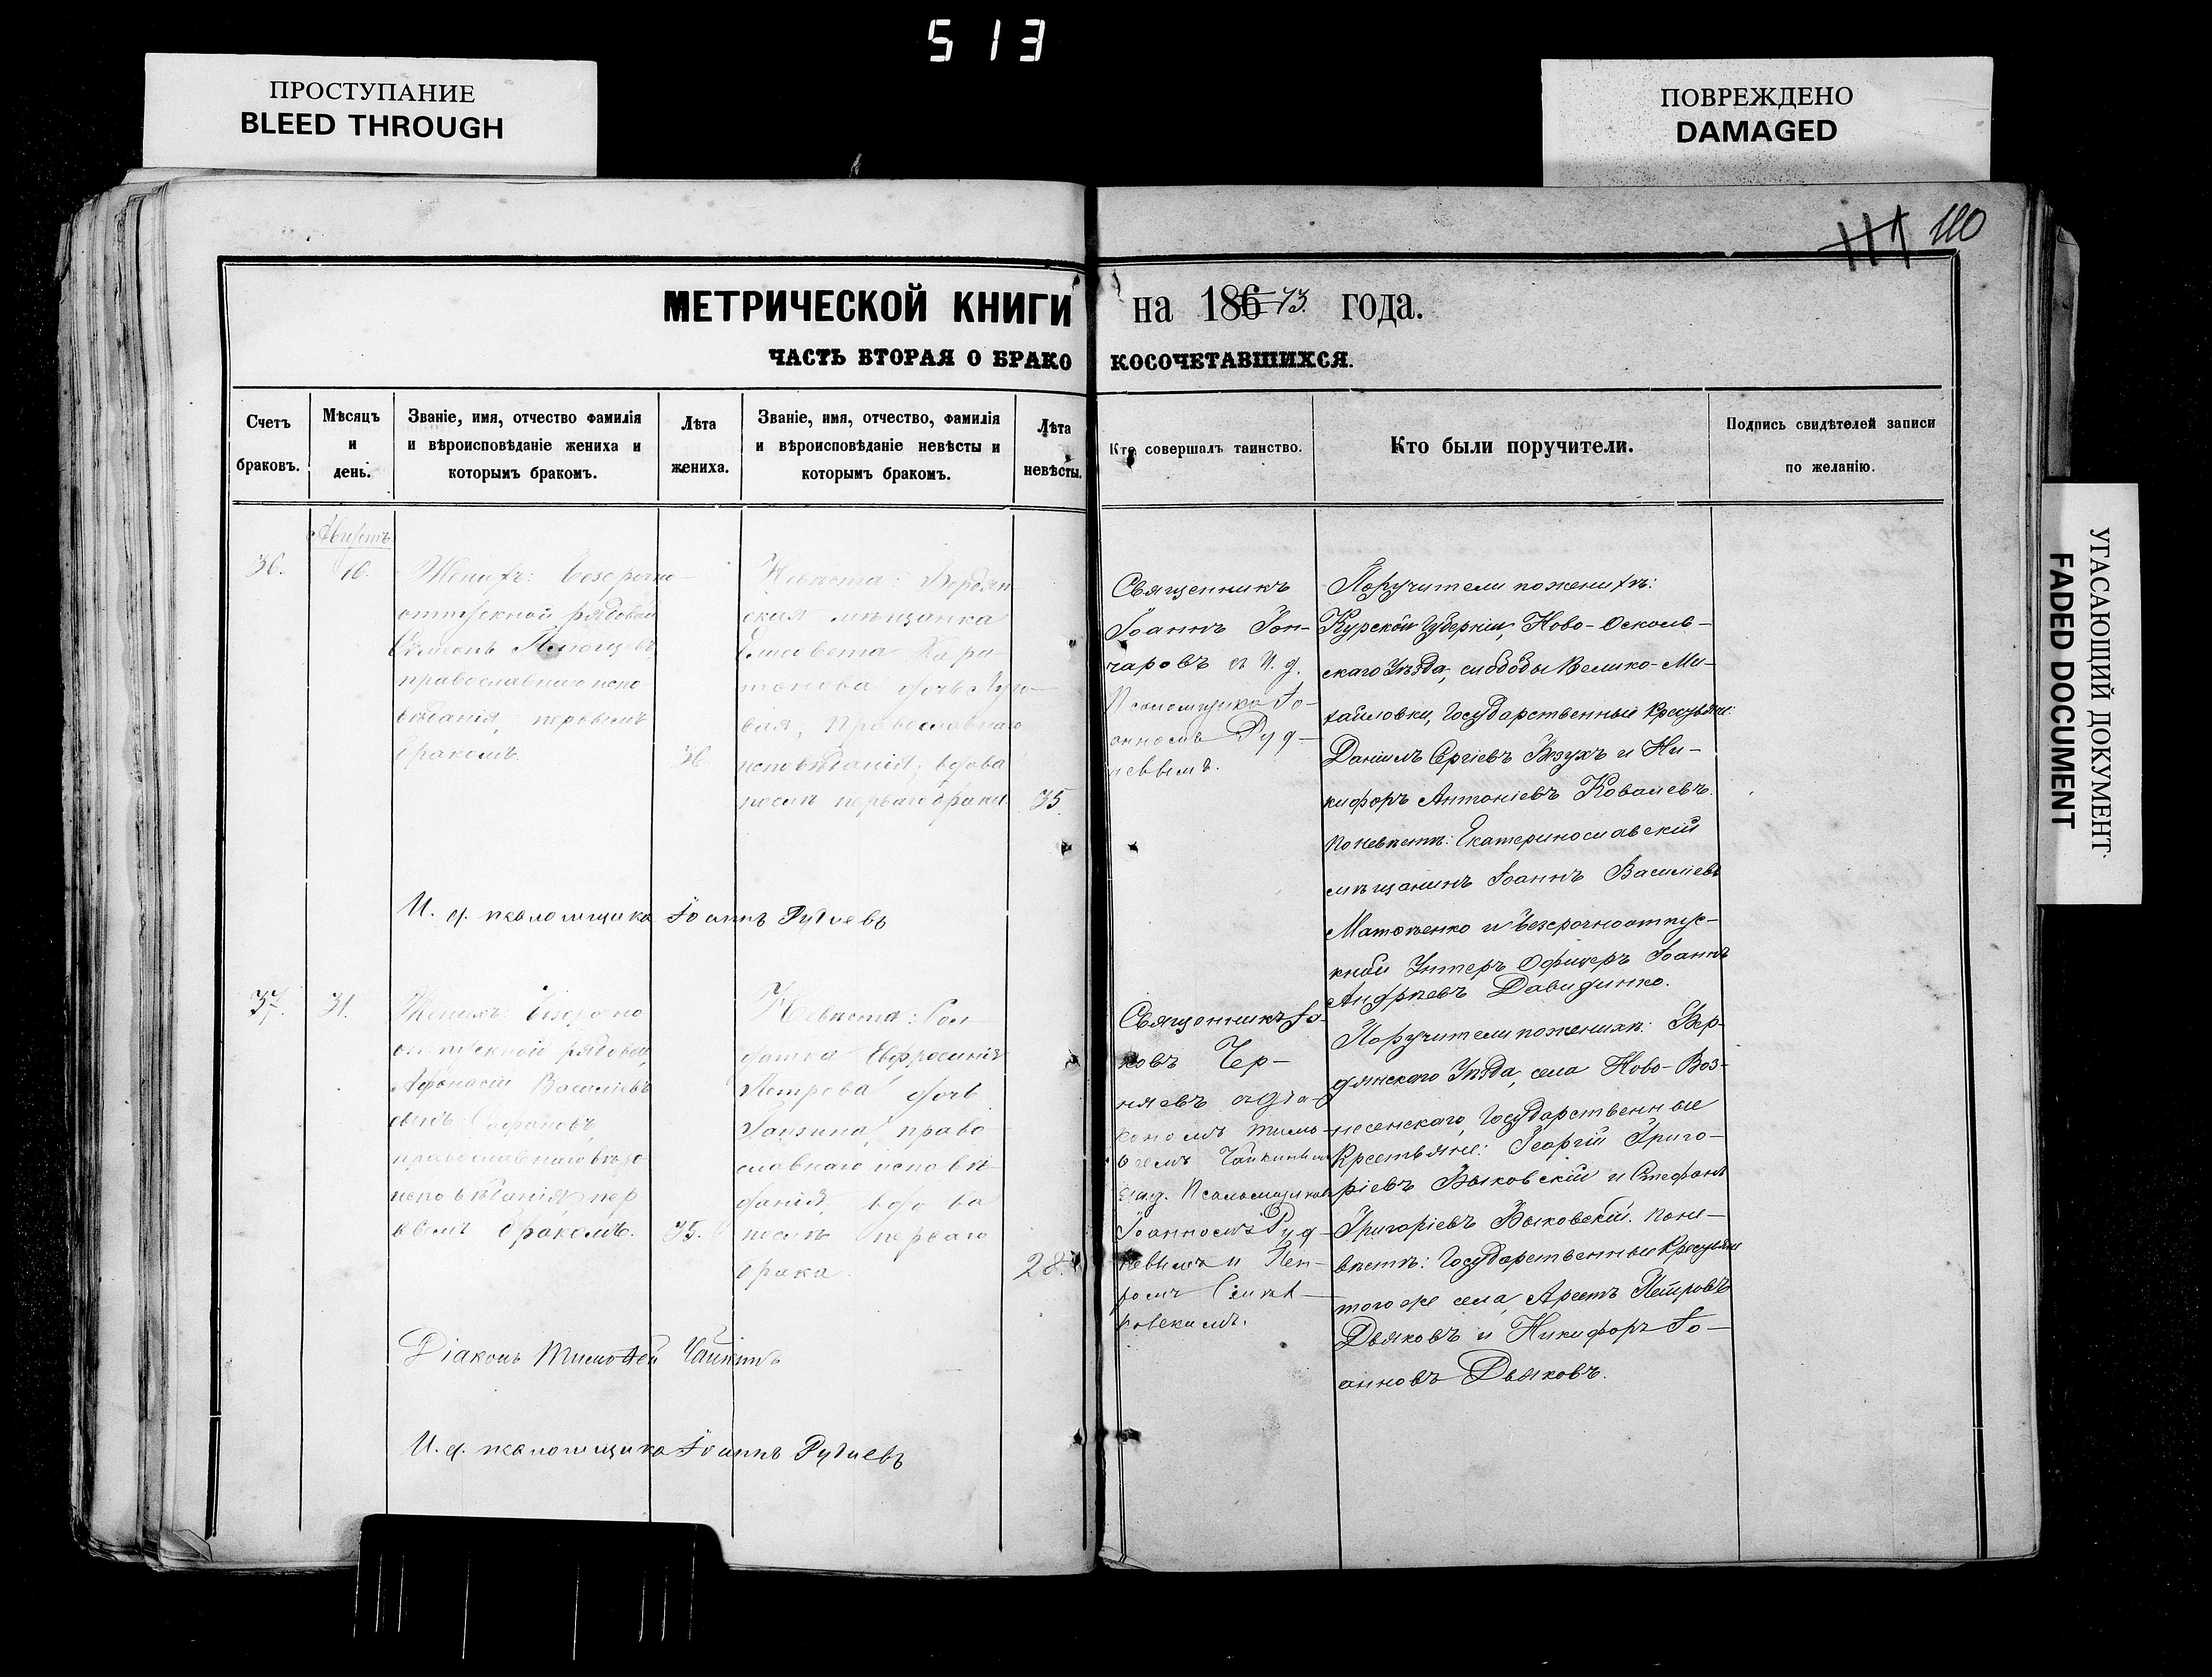 513
ПРОСТУПАНИЕ
BLEED THROUGH
ПОВРЕЖДЕНО
DAMAGED
УГАСАЮЩИЙ ДОКУМЕНТ
FADED DOCUMENT
111 110
МЕТРИЧЕСКОЙ КНИГИ на 186 73. года.
ЧАСТЬ ВТОРАЯ О БРАКО КОСОЧЕТАВШИХСЯ.
Счетъ
браковъ.
Мѣсяцъ
и
день.
Званіе, имя, отчество фамилія
и вѣроисповѣданіе жениха и
которымъ бракомъ.
Лѣта
жениха.
Званіе, имя, отчество, фамилія
и вѣроисповѣданіе невѣсты и
которымъ бракомъ.
Лѣта
невѣсты.
Кто совершалъ таинство.
Кто были поручители.
Подпись свидѣтелей записи
по желанію.
36.
Августъ
16.
Женихъ: безсрочно
отпускной рядовой
Симеонъ
православнаго испо
вѣданія, первымъ
бракомъ.
36
Невѣста: Бердян
ская мѣщанка
Елисавета Хари
тонова дочь
вая, Православнаго
исповѣданія, вдова
послѣ перваго брака.
35.
Священникъ
Іоаннъ Гон-
чаровъ съ И. д.
Псаломщика Іо-
анномъ Руд-
невымъ.
Поручители по женихѣ:
Курской Губерніи, Ново-Осколь-
скаго Уѣзда, слободы Велико-Ми-
хайловки, Государственные Крестьяне:
Даніилъ Сергіевъ и Ни-
кифоръ Антоніевъ Ковалевъ.
по невѣстѣ: Екатеринославскій
мѣщанинъ Іоаннъ Василіевъ
и безсрочноотпус-
кной Унтеръ Офицеръ Іоаннъ
Андреевъ Давиденко.
И. д. псаломщика Іоаннъ Рудневъ
37.
31.
Женихъ: безсрочно
отпускной рядовой,
Афанасій Василіевъ
сынъ
православнаго вѣро
исповѣданія, пер
вымъ бракомъ.
35.
Невѣста: Сол
датка Евфросинія
Петрова дочь
право
славнаго исповѣ-
данія, вдова
послѣ перваго
брака.
28.
Священникъ Іа-
ковъ Чер-
няевъ съ діа-
кономъ Тимо-
ѳеемъ Чайкинымъ
и и.д. Псаломщиковъ
Іоанномъ Руд-
невымъ и Пет-
ромъ
Поручители по женихѣ: Бер-
дянскаго Уѣзда, села Ново-Воз-
несенскаго, Государственные
Крестьяне: Георгій Григо-
ріевъ Быковскій и Стефанъ
Григоріевъ Быковскій. по не-
вѣстѣ: Государственные Крестьяне
того же села, Петровъ
Дьяковъ и Никифоръ Іо-
анновъ Дьяковъ.
Діаконъ Тимоѳей Чайкинъ
И. д. псаломщика Іоаннъ Рудневъ